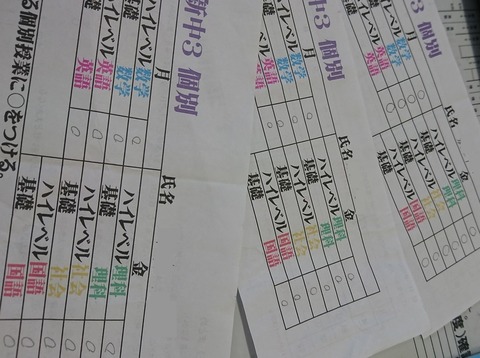 新中3 個別
氏名
月
ハイレベル数学
基礎数学
ハイレベル英語
基礎英語
金
ハイレベル理科
基礎理科
ハイレベル社会
基礎社会
ハイレベル国語
基礎国語
る個別授業に○をつける。
中3 個別
氏名
月
数学
数学
ベル英語
英語
金
ハイレベル理科
基礎理科
ハイレベル社会
基礎社会
ハイレベル国語
基礎国語
3 個別
氏名
月
数学
数学
ベル英語
英語
金
ハイレベル理科
基礎理科
ハイレベル社会
基礎社会
ハイレベル国語
基礎国語